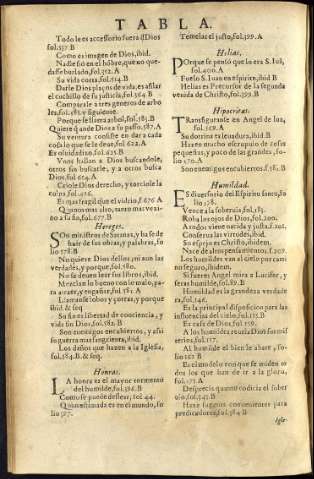 TABLA.
Todo le es accessorio fuera d Dios
fol.557 B
Como es imagen de Dios, ibid.
Nadie fio en el hõbre, que no quedasse burlado, fol.312. A
Su vida corta, fol.514. B
Darle Dios plaços de vida, es afilar
el cuchillo de su justicia, fol.564. B
Comparase a tres generos de arboles, fol.
Porque se llama arbol, fol.   B
Quiere q̃ ande Dios a su passo, 587. A
Su ventura consiste en dar a cada
cosa lo que se le deue, fol. 622. A
Es olvidadizo, fol. 625. B
Vnos hallan a Dios buscandole,
otros sin buscarle, y a otros busca
Dios, fol. 624. A
Criole Dios derecho, y torciole la
colpa, fol.
Es mas fragil que el vidrio, f.676 A
Quanto mas alto, tanto mas vezino a su fin, fol.677. B
Hereges.
SOn ministros de Satanas, y ha se de
huir de sus obras, y palabras, folio 178 B
No quiere Dios dellos, ni aun las
verdades, y porque, fol.180.
No se deuen leer sus libros, ibid.
Mezclan lo bueno con lo malo, para
atraer, y engañar, fol.181. A
Llamanse lobos, y çorras, y porque
ibid & seq
Su fin es libertad de conciencia, y
vida sin Dios, fol.182. B
Son enemigos encubiertos, y assi
su guerra mas sangrienta, ibid.
Los daños que hazen a la Iglesia,
fol.184. B. & seq.
Honras.
LA honra es el mayor tormento
del humilde, fol.336. B
Como se puede dessear, fol 44.
Quan estimada es en el mundo, folio 307.
Temelas el justo, fol.399. A
Helias.
POrque se pensò que lo era S. Iuã,
fol.400. A
Fuelo S. Iuan en espiritu, ibid B
Helias es Precursor de la segunda
venida de Christo, 399. B
Hipocritas.
TRansfigurarse en Angel de luz,
fol. A
Su dotrina es leuadura, ibid B
Hazen mucho escrupulo de cosas
pequeñas, y poco de las grandes, folio 570. A
Son enemigos encubiertos, f.185. B
Humildad.
ES diuersorio del Espiritu santo, folio 178.
Vence a la soberuia, fol.183.
Roba los ojos de Dios, fol.201.
A todos viene nacida y justa, f.101.
Conserua las virtudes, ibid.
Su espejo es Christo, ibidem.
Nace de altos pensamientos. f.307.
Los humildes van al cielo por camino seguro, ibidem.
Si fueren Angel mira a Lucifer, y
seras humilde, fol.89. B
Humildad es la grandeza verdadera, fol.
Es la principal disposicion para las
influencias del cielo, fol.   B
Es casa de Dios, fol.159.
A los humildes reuela Dios sus misterios, fol.117.
Al humilde el bien le abate, folio 162 B
Es el molde con que se miden todos los que han de ir a la gloria,
fol.   A
Desprecia quanto codicia el soberuio, fol.547. B
Haze sugetos conuenientes para
predicadores, fol.584 B
Igle